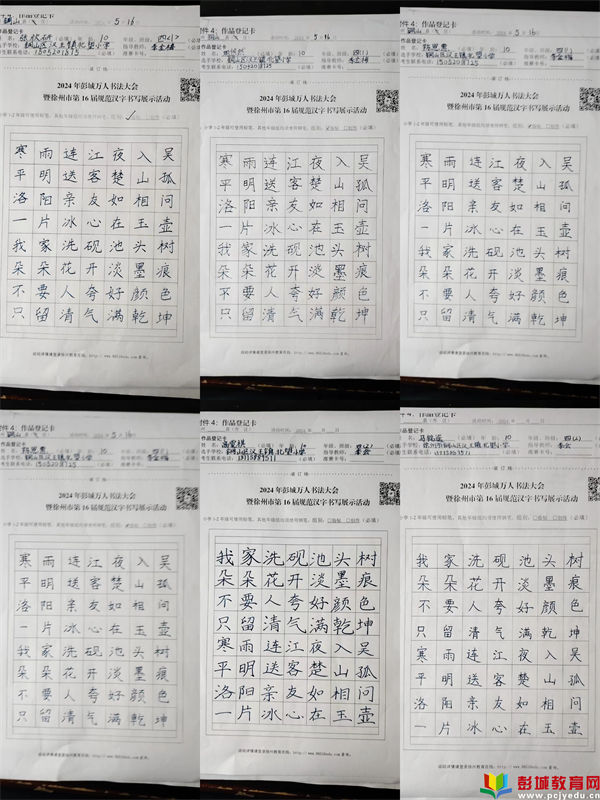 附件4：作品登记卡
5-16
10
四(1)
铜山区汉王镇北望小学
李金梅
15052018125
装订线
2024年彭城万人书法大会
暨徐州市第16届规范汉字书写展示活动
寒雨连江夜入吴
平明送客楚山孤
洛阳亲友如相问
一片冰心在玉壶
我家洗砚池头树
朵朵花开淡墨痕
不要人夸好颜色
只留清气满乾坤
附件4：作品登记卡
10
四(1)
铜山区汉王镇北望小学
李金梅
15052018125
装订线
2024年彭城万人书法大会
暨徐州市第16届规范汉字书写展示活动
寒雨连江夜入吴
平明送客楚山孤
洛阳亲友如相问
一片冰心在玉壶
我家洗砚池头树
朵朵花开淡墨痕
不要人夸好颜色
只留清气满乾坤
10
四(1)
铜山区汉王镇北望小学
李金梅
15052018125
装订线
2024年彭城万人书法大会
暨徐州市第16届规范汉字书写展示活动
寒雨连江夜入吴
平明送客楚山孤
洛阳亲友如相问
一片冰心在玉壶
我家洗砚池头树
朵朵花开淡墨痕
不要人夸好颜色
只留清气满乾坤
附件4：作品登记卡
5-16
10
铜山区汉王镇北望小学
李金梅
15052018125
装订线
2024年彭城万人书法大会
暨徐州市第16届规范汉字书写展示活动
寒雨连江夜入吴
平明送客楚山孤
洛阳亲友如相问
一片冰心在玉壶
我家洗砚池头树
朵朵花开淡墨痕
不要人夸好颜色
只留清气满乾坤
附件4：作品登记卡
10
铜山区汉王镇北望小学
装订线
2024年彭城万人书法大会
暨徐州市第16届规范汉字书写展示活动
我家洗砚池头树
朵朵花开淡墨痕
不要人夸好颜色
只留清气满乾坤
寒雨连江夜入吴
平明送客楚山孤
洛阳亲友如相问
一片冰心在玉壶
10
四(2)
徐州市铜山区汉王镇北望小学
装订线
2024年彭城万人书法大会
暨徐州市第16届规范汉字书写展示活动
我家洗砚池头树
朵朵花开淡墨痕
不要人夸好颜色
只留清气满乾坤
寒雨连江夜入吴
平明送客楚山孤
洛阳亲友如相问
一片冰心在玉壶
彭城教育网
www.pcjyedu.cn